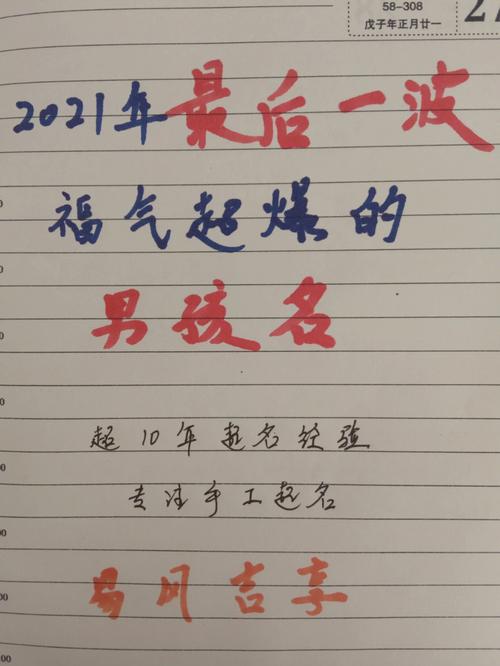 58-308
戊子年正月廿一
27
2021年最后一波
福气起爆的
男孩名
超10年起名经验
专注手工起名
易风吉享